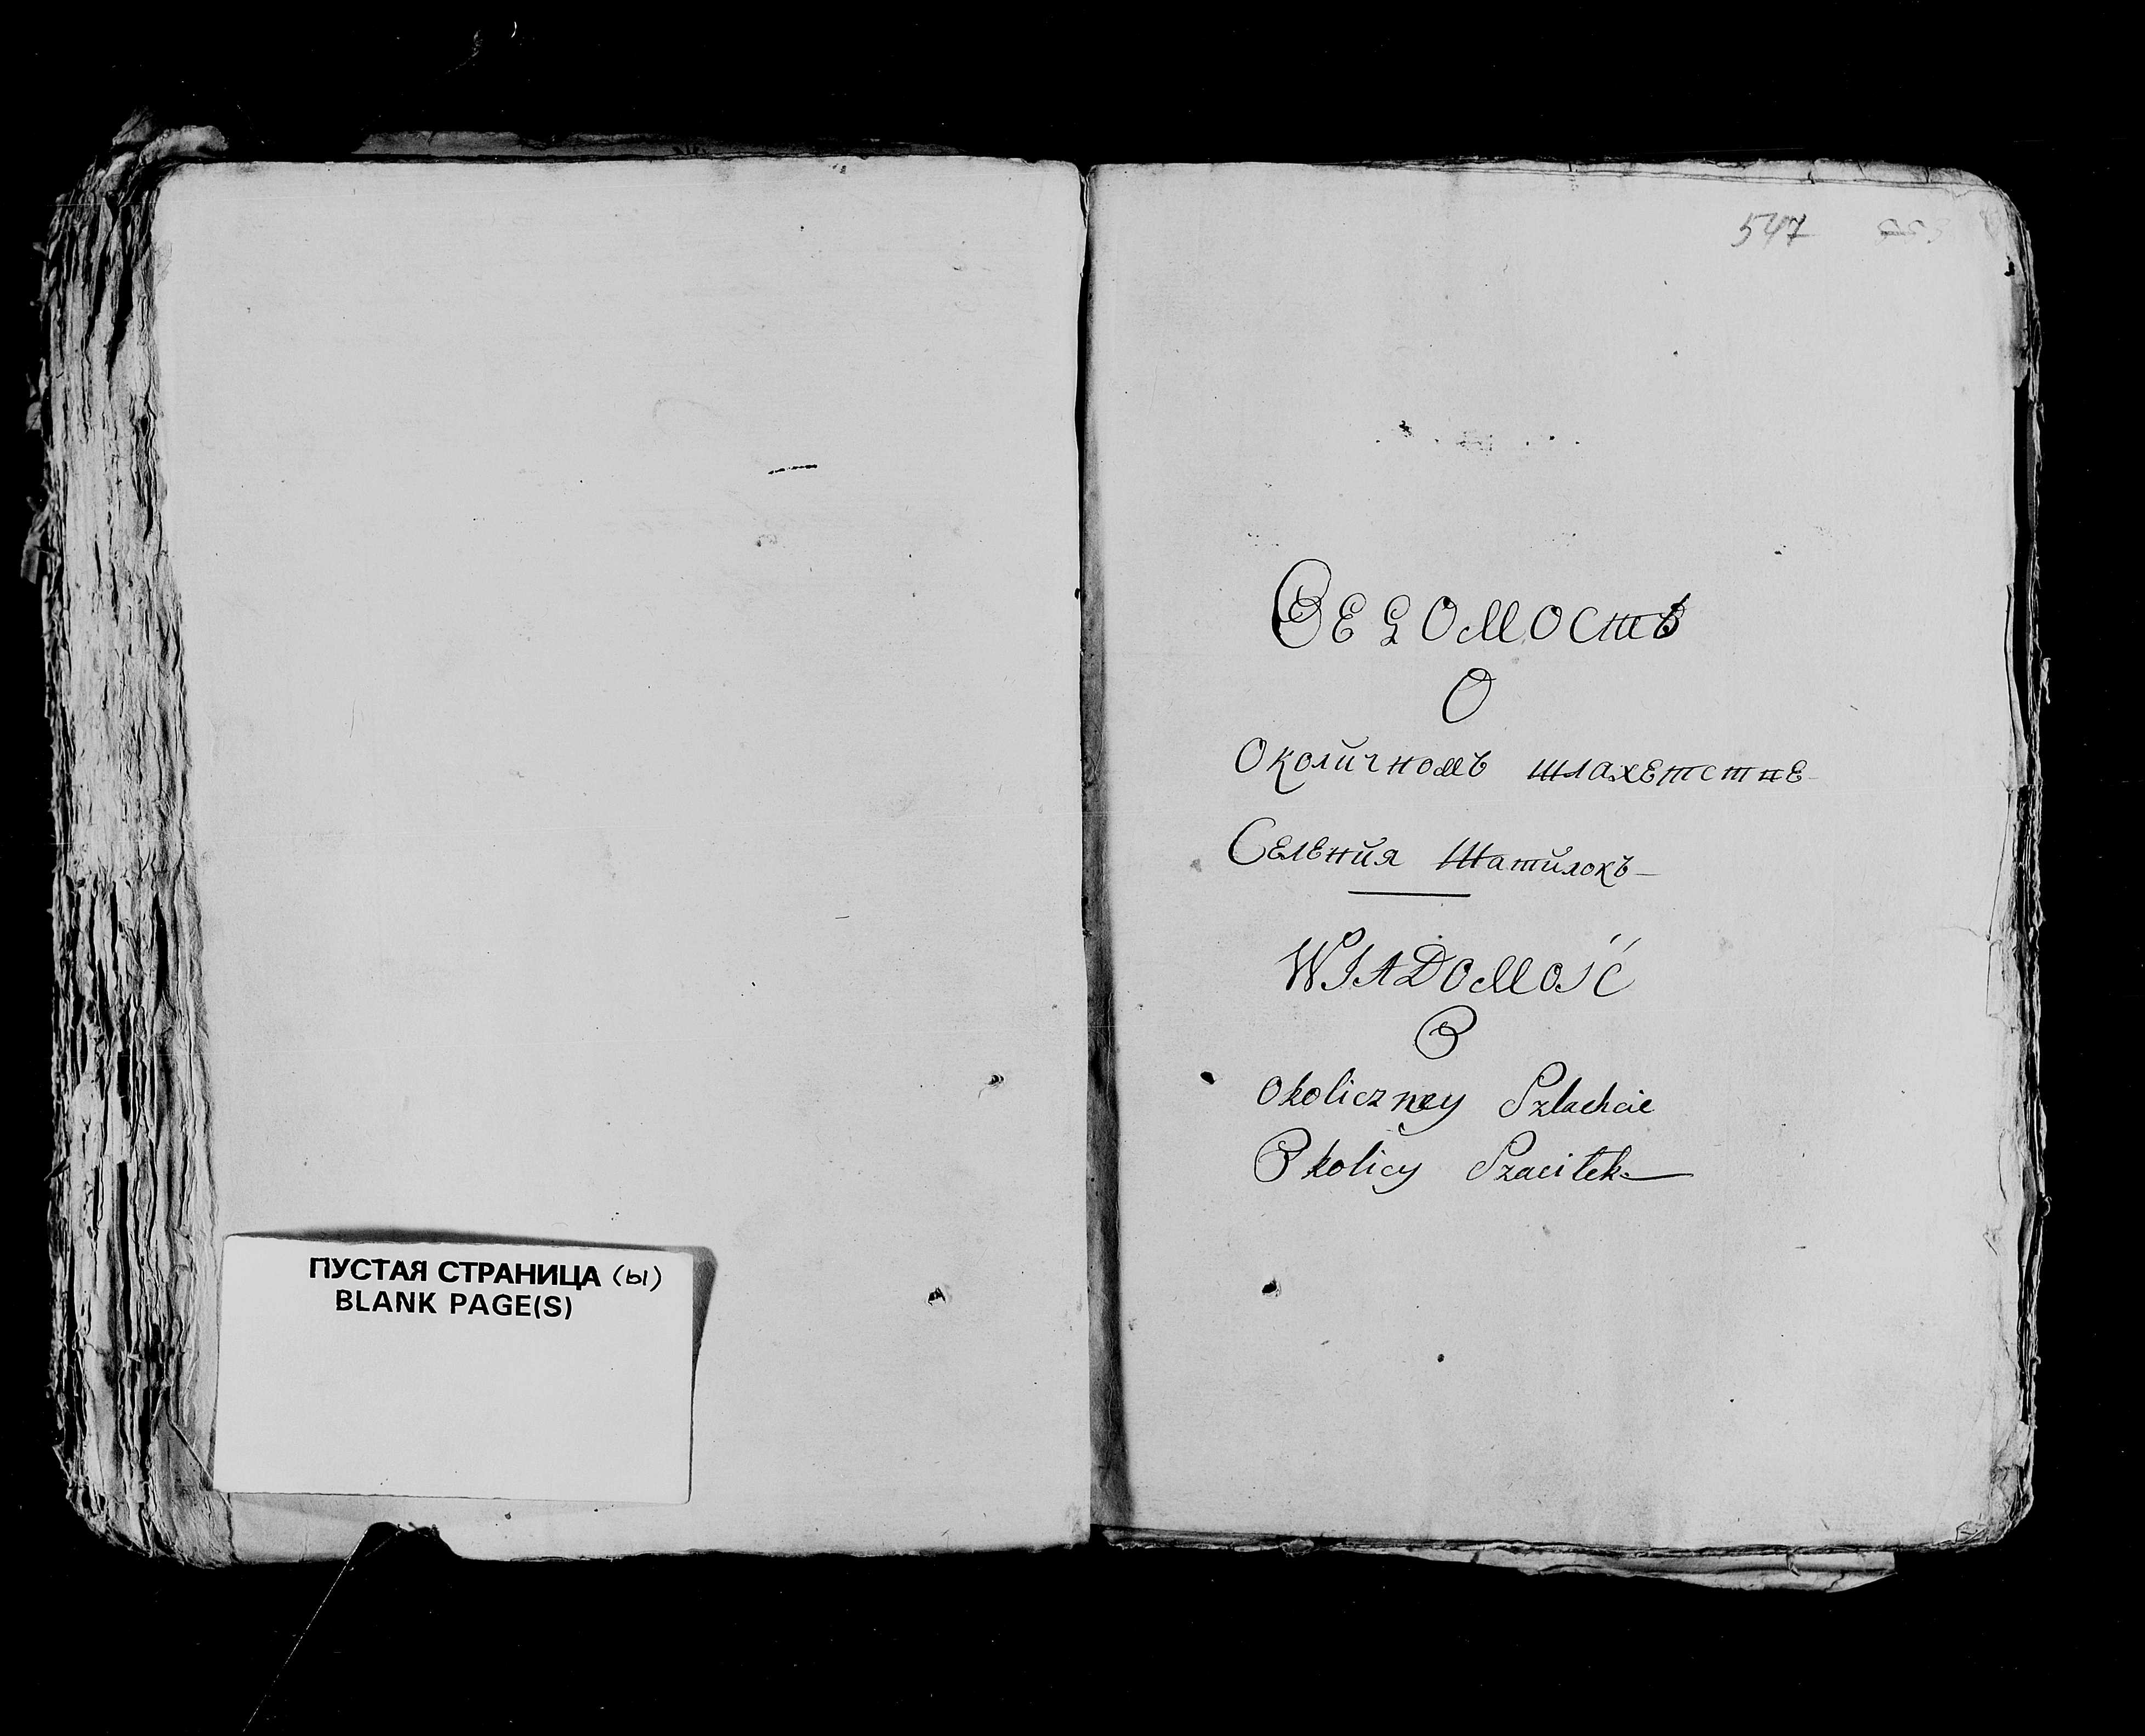 ПУСТАЯ СТРАНИЦА (ы)
BLANK PAGE(S)
547
Ведомость
О
Околичномъ шлахетстве
Селения Шатилокъ
WIADOMOŚĆ
O
Okoliczney Szlachcie
Okolicy Szaciłek